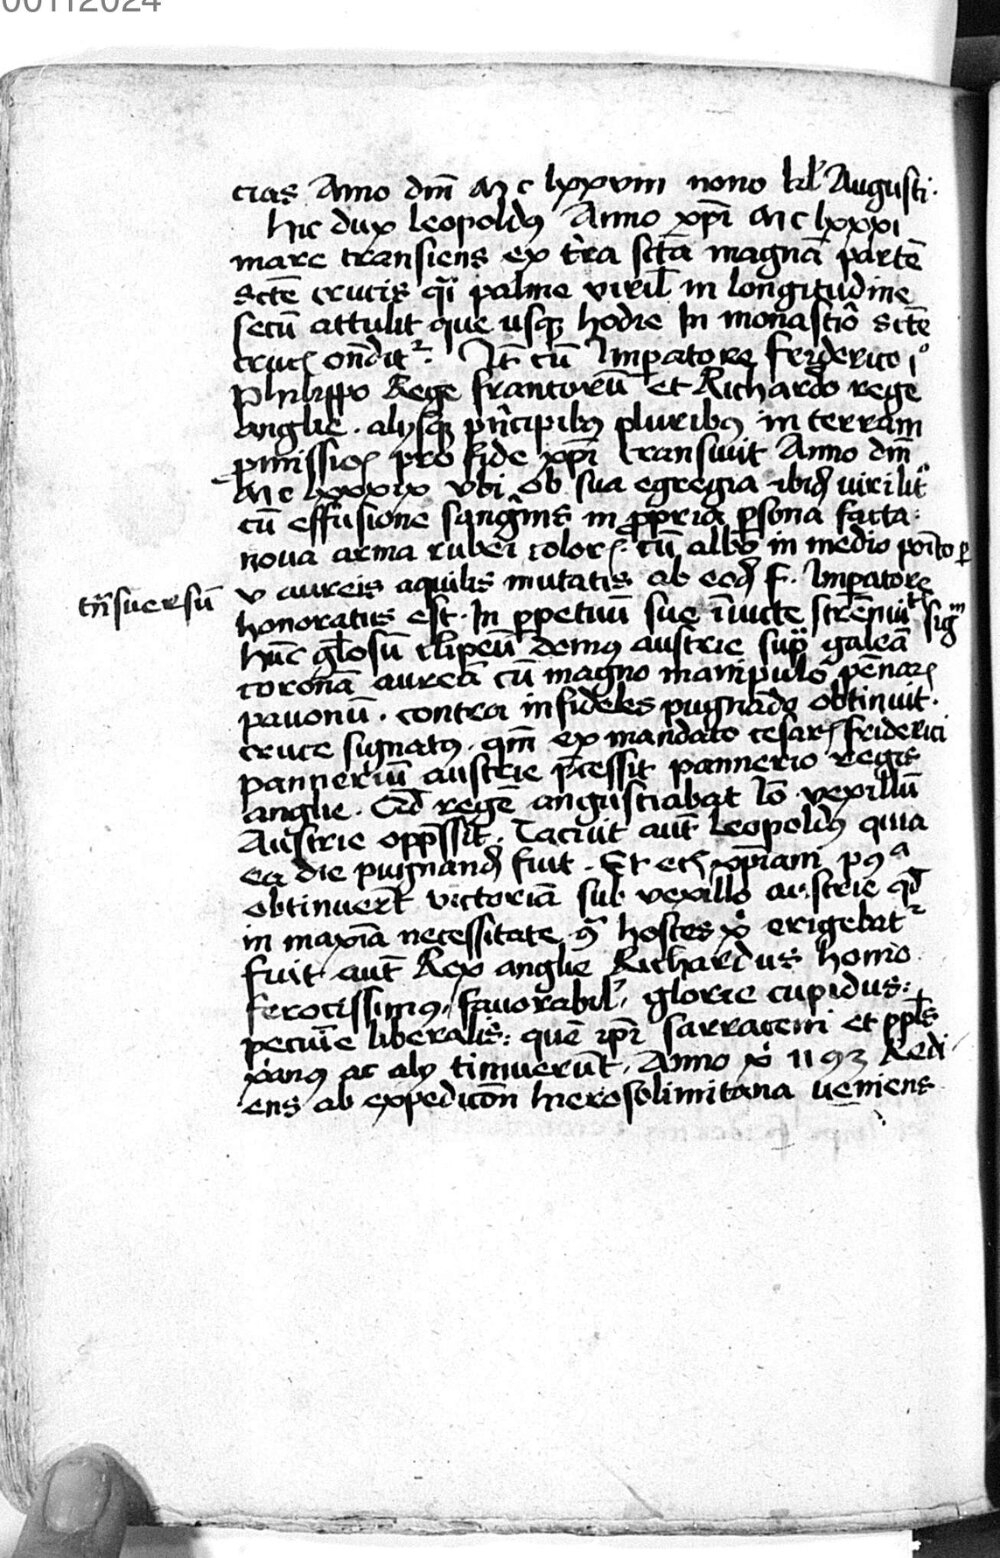 00112024
cias Anno dm̄ M c lxxviii nono kl' Augusti.
hic dux leopoldꝰ Anno xp̄i M c lxxxi
mare transiens ex tr̄ra sct̄a magnā partē
sctē crucis q̄ȝ palme viril' in longitudine
secū attulit que usqȝ hodie In monast̄io sctē
crucꝭ ond̄it᷑. It̄ cū Imperatore friderico iº
philippo Rege francorū et Richardo rege
anglie. alysqȝ pn̄cipibꝰ pluribꝰ in terram
ꝓmissioꝭ pro fide xp̄i transivit Anno dm̄
M c lxxxix vbi ob sua egregia ibid̄ virilit̄
cū effusione sangnīs in ꝓpria ꝑsona facta.
nova arma rubei colorꝭ. cū albo in medio
v aureis aquilis mutatis ab eod̄ F. Imꝑatore
tn̄suersū
honoratus est. In ꝑpetuū sue īuicte strēnuit sigm̄
hūc gl̄osū clipeū domꝰ austrie suꝑ galeā
coronā aureā cū magno manipulo pēnarꝭ
pavonū. contra infideles pugnādo obtinuit.
cruce signatꝰ. qm̄ ex mandato cesarꝭ friderici
panneriū austrie p̄cessit pannerio regis
anglie. Qd̄ regē angustiabat Iō vexillū
Austrie opp̄ssit. Tacuit aut̄ Leopoldꝰ quia
ea die pugnand̄ fuit. Et etꝭ xp̄iani pꝰª
obtinuer̄t victoriā sub vexillo austrie qd̄
in maxīa necessitate ꝯ hostes xi̇ erigebat᷑
fuit aut̄ Rex anglie Richardus homo
ferocissimꝰ, favorabil', glorie cupidus:
pecuīe liberalis: quē ip̄i sarraceni et ppl̄s
xianꝰ ac aly timuerūt. Anno xi̇ 1193 Redi
ens ab expedicōn hierosolimitana veniens